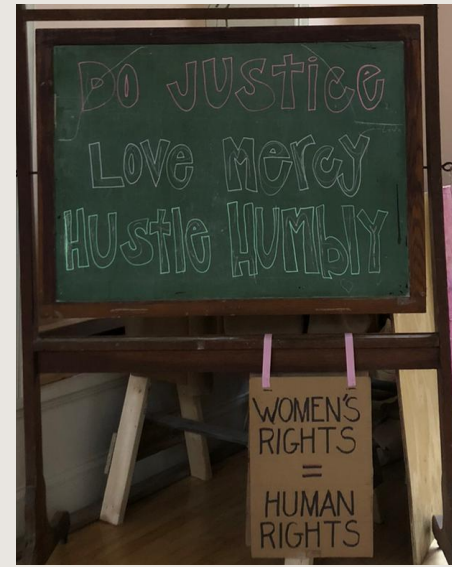 DO JUSTICE
LOVE MERCY
HUSTLE HUMBLY
WOMEN'S
RIGHTS
=
HUMAN
RIGHTS